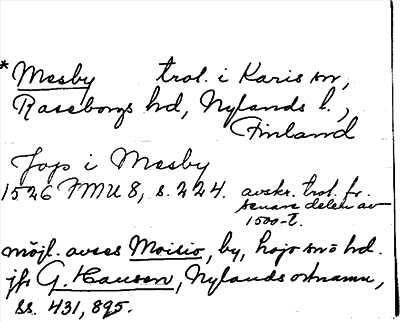 * Mesby trol. i Karis sn,
Raseborgs hd, Nylands l.,
Finland
Jop i Mesby
1526 FMU 8, s. 224. avskr. trol. fr.
senare delen av
1500-t.
möjl. avses Moisio, by, Lojo sn o hd.
jfr G. Hausen, Nylands ortnamn,
ss. 431, 895.